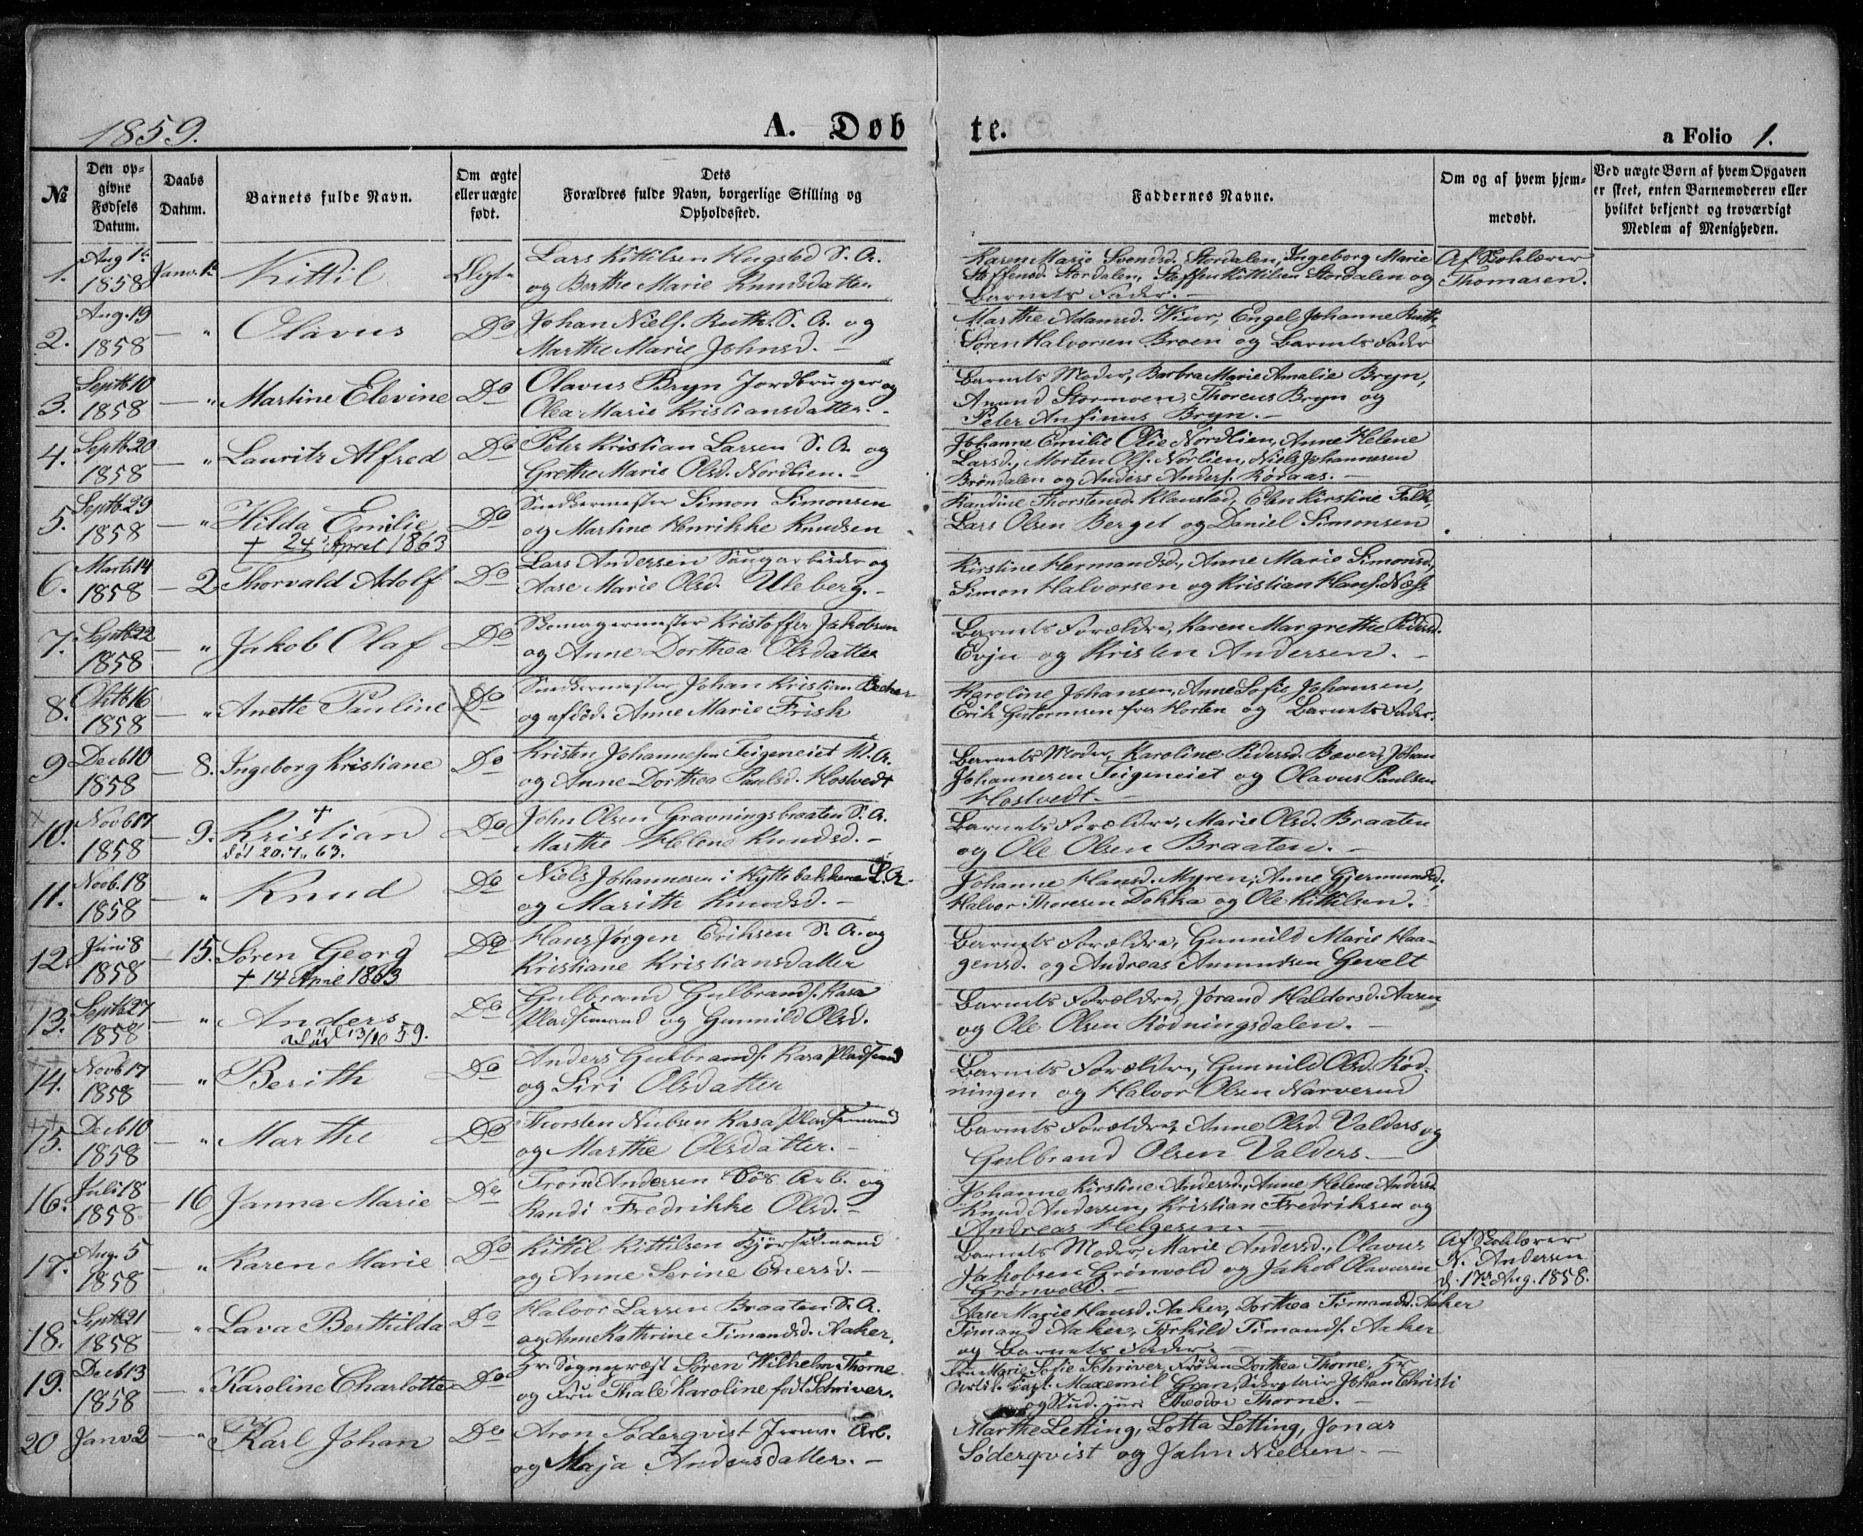 1859.
A. Døb
te.
a Folio 1.
№
Den op-
givne
Fødsels
Datum.
Daabs
Datum.
Barnets fulde Navn.
Om ægte
eller uægte
født.
Dets
Forældres fulde Navn, borgerlige Stilling og
Opholdssted.
Faddernes Navne.
Om og af hvem hjem-
medøbt.
Ved uægte Børn af hvem Opgaven
er skeet, enten Barnemoderen eller
hvilket bekjendt og troværdigt
Medlem af Menigheden.
1. Aug 1
1858 Janv. 1 Kittil
Lars Kittilsen Hugsted S. A.
og Berthe Marie Knudsdatter
Karen Marie Svendsd. Stordalen, Ingeborg Marie
Steffensd. Stordalen, Steffen Kittilsen Stordalen og
Barnets Fader.
Af Skolelærer
Thomasen.
2. Aug. 19
1858 — " Olavus Do
Johan Niels. Ruth. S. A. og
Marthe Marie Johnsd. —
Marthe Adamsd. Wiur, Engel Johanne Ruth,
Søren Halvorsen Broen og Barnets Fader
3. Septb 10
1858 — " Martine Elevine Do
Olavus Bryn Jordbruger og
Olea Marie Kristiansdatter. -
Barnets Moder, Barbra Marie Amalie Bryn,
Anund Stormoen, Thoreus Bryn og
Peter Anfinus Bryn. —
4. Septb. 20
1858 — " Lauritz Alfred Do
Peter Kristian Larsen S. A. og
Grethe Marie Olsd. Nordlien. —
Johanne Emilie Olie Nordlien, Anne Helene
Larsd., Morten Ols. Norlien, Niels Johannesen
Brøndalen og Anders Anders. Røraas. —
5. Septb. 29
1858 — " Hilda Emilie Do
† 24 April 1863
Snedkermester Simon Simonsen
og Martine Henrikke Knudsen
Randine Thorstensd. Klaustad, Elen Kirstine Falk,
Lars Olsen Berget og Daniel Simonsen
6. Marts 14
1858 — 2 Thorvald Adolf Do
Lars Andersen Saugarbeider og
Aase Marie Olsd. Uleberg. —
Kirstine Hermandsd., Anne Marie Simonsd.,
Simon Halvorsen og Kristian Hans. Næss
7. Septb. 22
1858 — " Jakob Olaf Do
Skomagermester Kristoffer Jakobsen
og Anne Dorthea Olsdatter
Barnets Forældre, Karen Margrethe Pedersd.
Evju og Kristen Andersen. —
8. Oktb 16
1858 — " Anette Pauline Do
Snedkermester Johan Kristian Becker
og afdød. Anne Marie Frish
Karoline Johansen, Anne Sofie Johansen,
Erik Guttormsen fra Horten og Barnets Fader.
9 Decb 10
1858 — 8. Ingeborg Kristiane Do
Kristen Johannesen Teigeneiet
og Anne Dorthea Paulsd. Hostvedt
Barnets Moder, Karoline Pedersd. Bæver, Johan
Johannesen Teigeneiet og Olavus Paulsen
Hostvedt. —
10. Novb 17
1858 — 9. Kristian Do
†
død 20.7. 63.
John Olsen Gravningsbraaten S. A.
Marthe Helene Knudsd. —
Barnets Forældre, Marie Olsd. Braaten
og Ole Olsen Braaten. —
11. Novb. 18
1858 — " Knud Do
Niels Johannesen i Hyttebakken S. A.
og Marith Knudsd. —
Johanne Hansd. Myren, Anne Gjermundsd.,
Halvor Thoresen Dokka og Ole Kittilsen.
12. Juni 8
1858 — 15. Søren Georg Do
† 14 April 1863
Hans Jørgen Eriksen S. A. og
Kristiane Kristiansdatter
Barnets Forældre, Gunnild Marie Haa-
gensd. og Andreas Amundsen Gevelt
13. Septb. 27
1858 — " Anders Do
død 13/10 59.
Gulbrand Gulbrands. Rasa
Pladsemand og Gunnild Olsd.
Barnets Forældre, Jørand Haldorsd. Aasen
og Ole Olsen Rødningsdalen. —
14. Novb 17
1858 — " Berith Do
Anders Gulbrands. Rasa Pladsemand
og Siri Olsdatter
Barnets Forældre, Gunnild Olsd. Rød-
ningen og Halvor Olsen Narverud
15. Decb 10
1858 — " Marthe Do
Thorsten Nubsen Rasa Pladsemand
og Marthe Olsdatter. —
Barnets Forældre, Anne Olsd. Valders og
Gulbrand Olsen Valders. —
16. Juli 18
1858 — 16 Janna Marie Do
Trond Andersen Løs Arb. og
Randi Fredrikke Olsd. —
Johanne Kirstine Andersd., Anne Helene Andersd.
Knud Andersen, Kristian Fredriksen og
Andreas Helgesen. —
17. Aug. 5
1858 — " Karen Marie Do
Kittil Kittilsen Kjørselsmand
og Anne Serine Enersd. —
Barnets Moder, Marie Andersd., Olavus
Jakobsen Grønvold og Jakob Olavusen
Grønvold. —
Af Skolelærer
N. Andersen
d. 17de Aug. 1858.
18. Septb. 21
1858 — " Lava Berthilda Do
Halvor Larsen Braaten S. A.
og Anne Kathrine Timandsd. Aaker.
Aase Marie Hansd. Aaker, Dorthea Timandsd. Aaker
Timand Aaker, Torkild Timands. Aaker
og Barnets Fader. —
19. Decb 13
1858 — " Karoline Charlotte Do
Hr. Sognepræst Søren Wilhelm Thorne
og Fru Thale Karoline født Schriver.
Fru Marie Sofie Schriver, Frøken Dorthea Thorne, Hr
Maxemil Gran, Johan Christi
og Stud. juris Theodor Thorne. —
20 Janv. 2 — " Karl Johan Do
Aron Söderqvist Jernv. Arb.
og Maja Andersdatter. —
Marthe Letting, Lotta Letting, Jonas
Söderqvist og John Nielsen. —